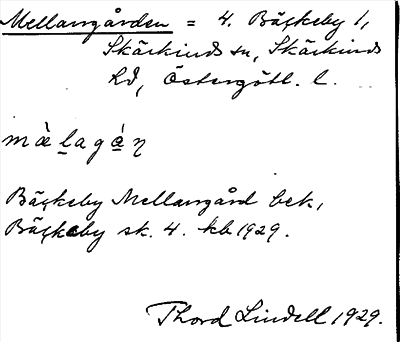 Mellangården = 4. Bäckeby 1,
Skärkinds sn, Skärkinds
hd, Östergötl. l.
màlagá̱ɳ
Bäckeby Mellangård bek,
Bäckeby sk. 4. kb 1929.
Thord Lindell 1929.